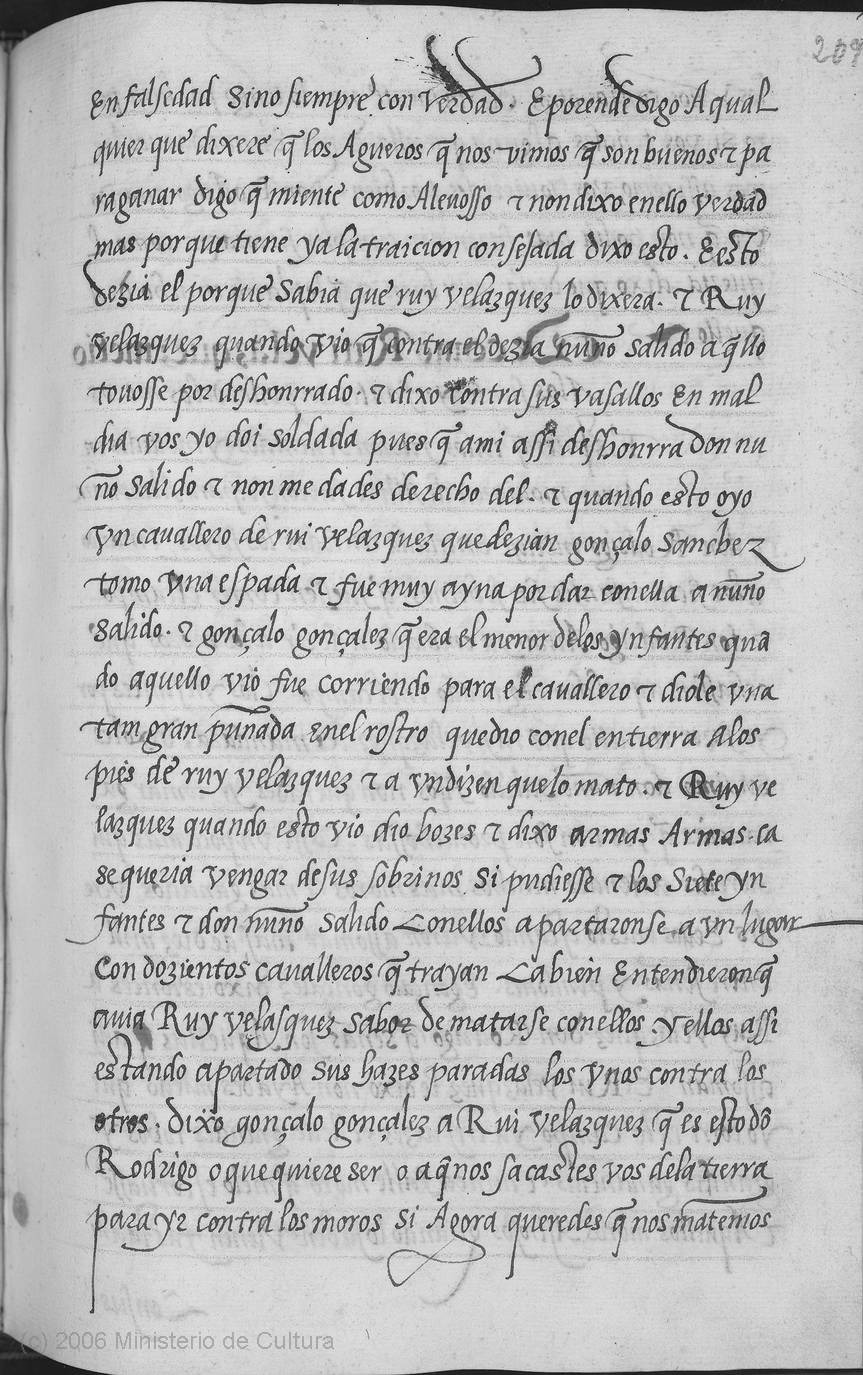 209
En falsedad Sino siempre con Verdad. E porende digo A qual
quier que dixere q̃ los Agueros q̃ nos vimos q̃ son buenos τ pa
ra ganar digo q̃ miente como Alevosso τ non dixo en ello verdad
mas porque tiene ya la traicion consejada dixo esto. E esto
dezia el porque Sabia que ruy velazquez lo dixera. τ Ruy
velazquez quando vio q̃ contra el dezia nuño salido aq̃llo
tovosse por deshonrrado. τ dixo contra sus vasallos En mal
dia vos yo doi soldada pues q̃ ami assi deshonrra don nu
ño Salido τ non me dades derecho del. τ quando esto oyo
Vn cavallero de rui velazquez que dezian gonçalo Sanchez
tomo vna espada τ fue muy ayna por dar con ella a nuño
Salido. τ gonçalo gonçalez q̃ era el menor delos ynfantes quã
do aquello vio fue corriendo para el cavallero τ diole vna
tam gran puñada En el rostro que dio con el en tierra A los
pies de ruy velazquez τ a vn dizen que lo mato. τ Ruy ve
lazquez quando esto vio dio bozes τ dixo armas Armas. ca
se queria vengar de sus sobrinos Si pudiesse τ los Siete yn
fantes τ don nuño Salido Con ellos apartaronse a vn lugar
Con dozientos cavalleros q̃ trayan Ca bien Entendieron q̃
avia Ruy velasquez Sabor de matarse con ellos. y ellos assi
estando apartado Sus hazes paradas los vnos contra los
otros. dixo gonçalo gonçalez a Rui velazquez q̃ es esto dõ
Rodrigo o que quiere ser o a q̃ nos sacastes vos de la tierra
para yr contra los moros Si Agora queredes q̃ nos matemos
(c) 2006 Ministerio de Cultura